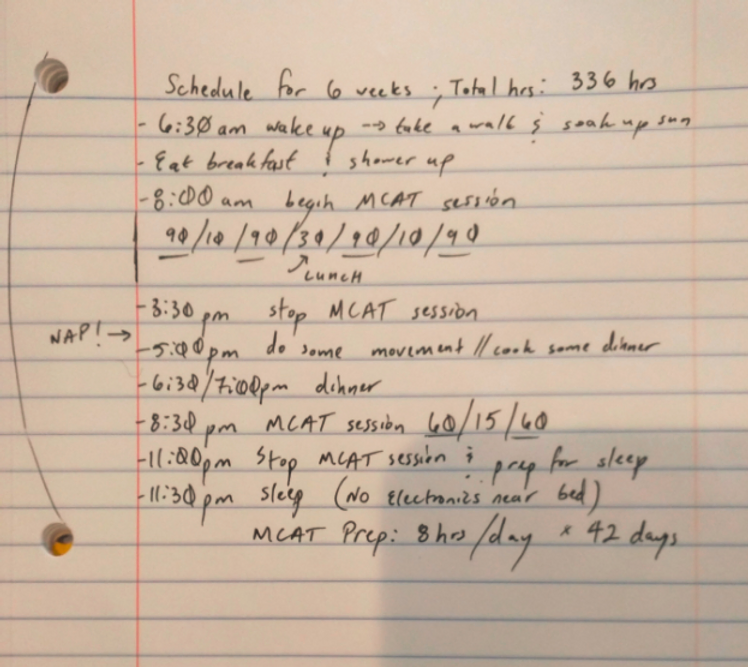 Schedule for 6 weeks ; Total hrs: 336 hrs
- 6:30 am wake up --> take a walk & soak up sun
- Eat breakfast & shower up
- 8:00 am begin MCAT session
90/10/90/30/90/10/90
↗
LUNCH
- 3:30 pm stop MCAT session
NAP! →
- 5:00 pm do some movement // cook some dinner
- 6:30/7:00pm dinner
- 8:30 pm MCAT session 60/15/60
- 11:00pm Stop MCAT session & prep for sleep
- 11:30pm sleep (NO Electronics near bed)
MCAT Prep: 8 hrs/day * 42 days